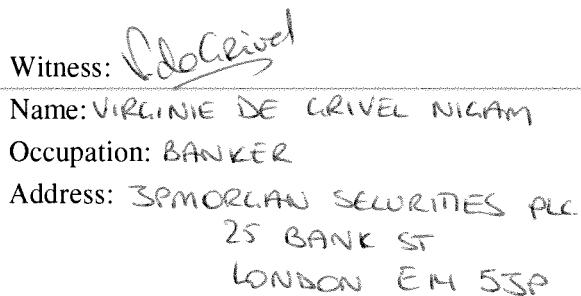 Witness: VdeGrivel
Name: VIRGINIE DE GRIVEL NIGAM
Occupation: BANKER
Address: JPMORGAN SECURITIES PLC
25 BANK ST
LONDON E14 5JP